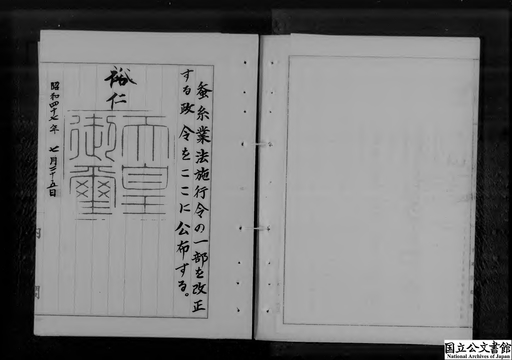 蚕糸業法施行令の一部を改正
する政令をここに公布する。
裕仁
天皇
御璽
昭和四十七年 七月二十五日
国立公文書館
National Archives of Japan